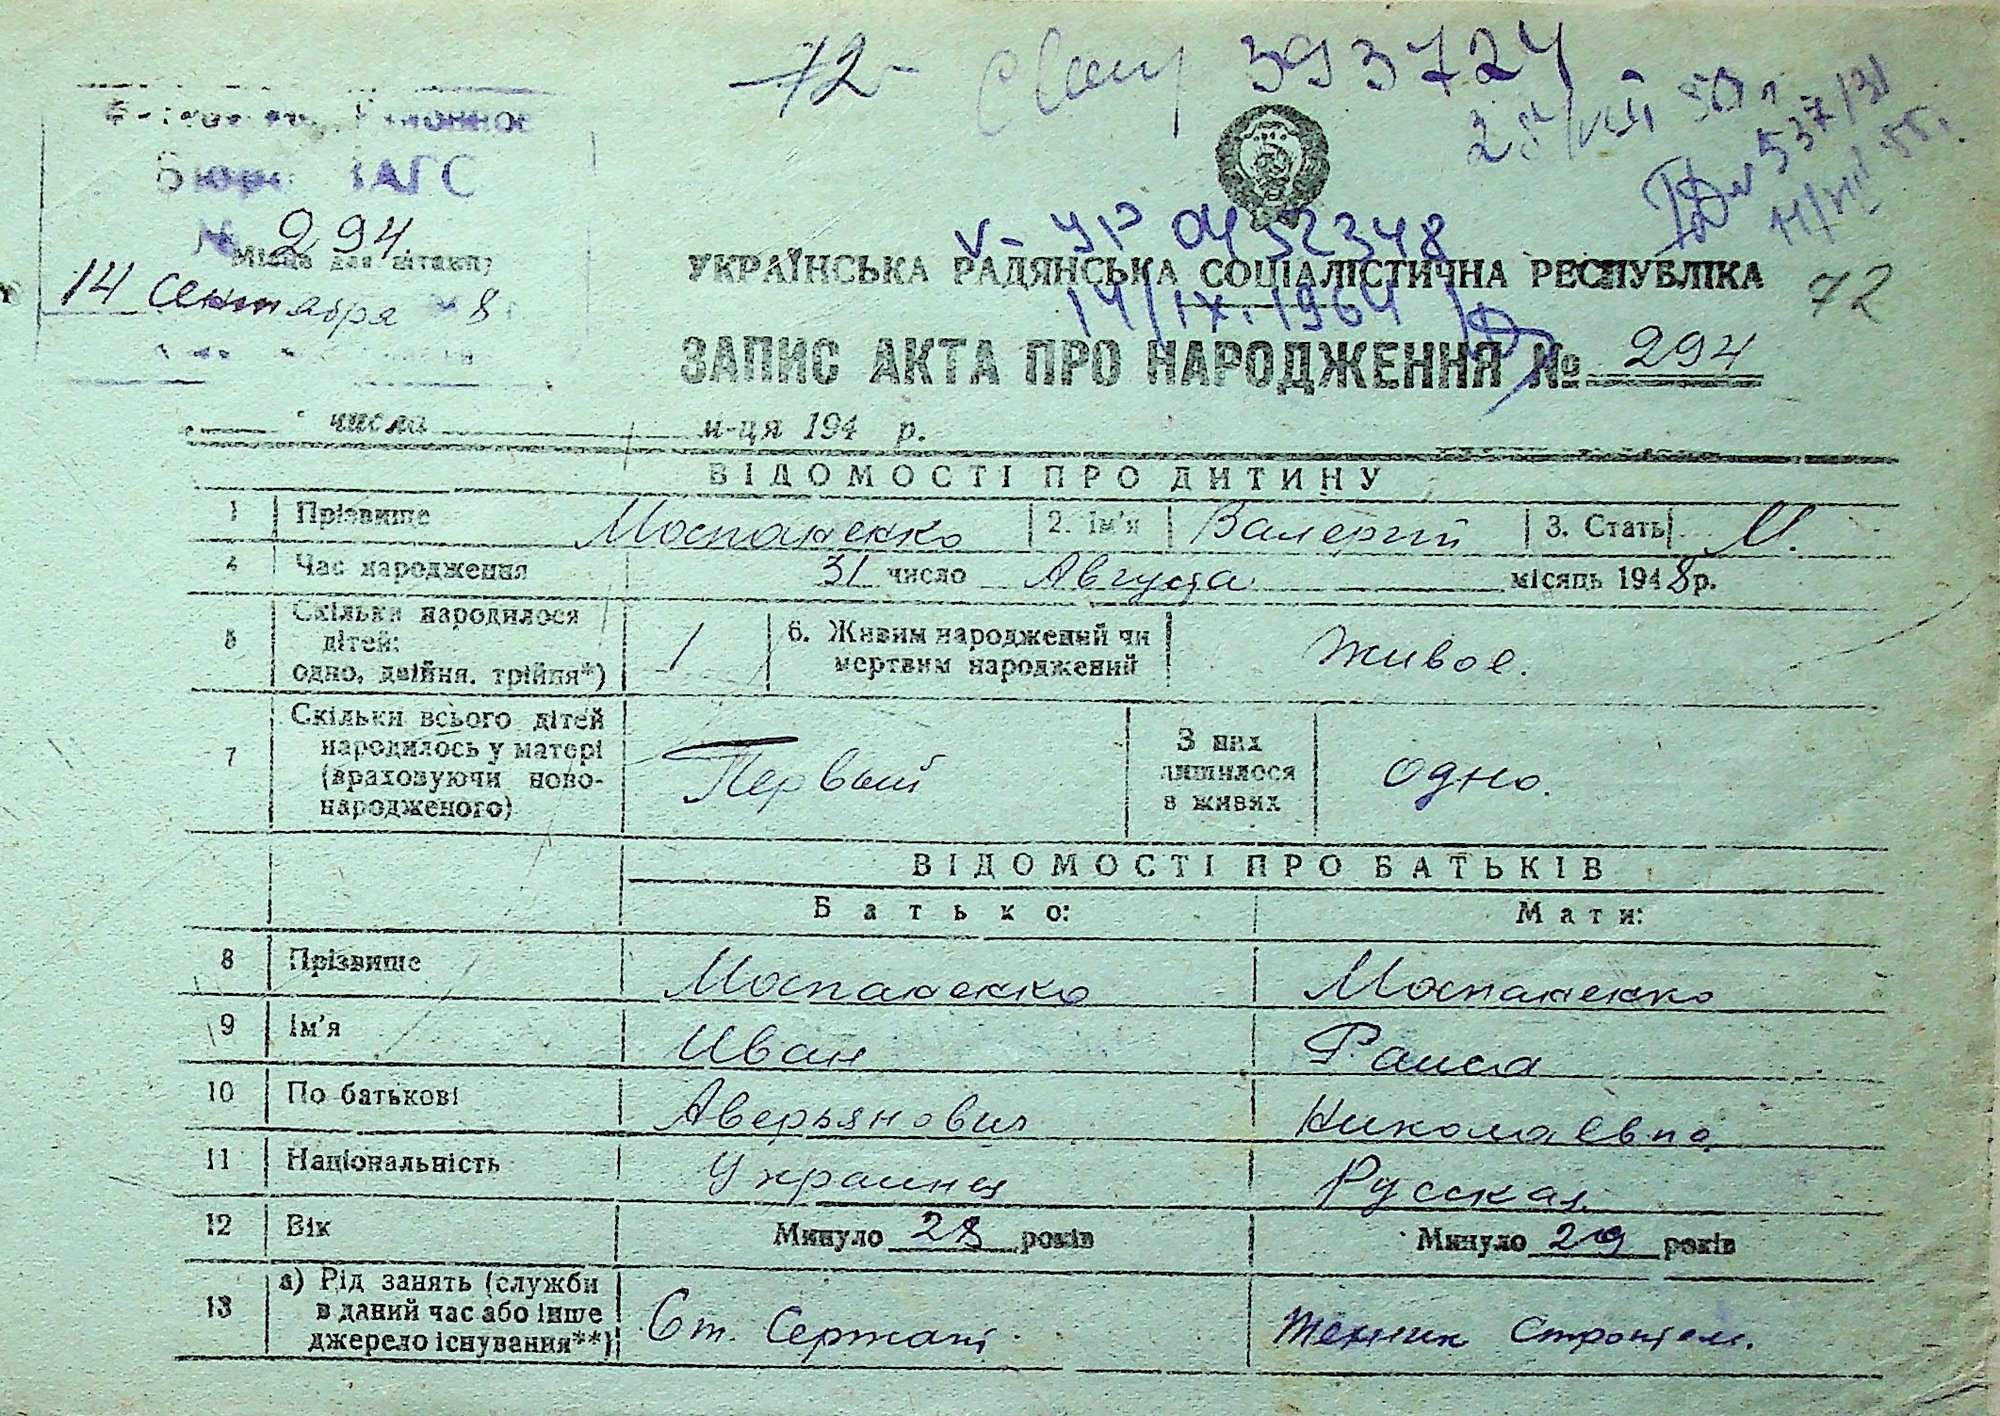 72 393724
537/31
Бюро ЗАГС
V-УР 0452348
№ 294
Місце для штампу
УКРАЇНСЬКА РАДЯНСЬКА СОЦІАЛІСТИЧНА РЕСПУБЛІКА 72
14 сентября 8
14/IX.1964
ЗАПИС АКТА ПРО НАРОДЖЕННЯ № 294
числа м-ця 194 р.
ВІДОМОСТІ ПРО ДИТИНУ
1 Прізвище Моспаненко 2. Ім'я Валерий 3. Стать М.
4 Час народження 31 число Августа місяць 1948 р.
5 Скільки народилося дітей: одно, двійня, трійня*) 1 6. Живим народжений чи мертвим народжений живое.
7 Скільки всього дітей народилось у матері (враховуючи новонародженого) Первый З них лишилося в живих одно.
ВІДОМОСТІ ПРО БАТЬКІВ
Батько: Мати:
8 Прізвище Моспаненко Моспаненко
9 Ім'я Иван Раиса
10 По батькові Аверьянович Николаевна
11 Національність Украинец Русская
12 Вік Минуло 28 років Минуло 29 років
13 а) Рід занять (служби в даний час або інше джерело існування**) Ст. Сержант Техник Строитель.